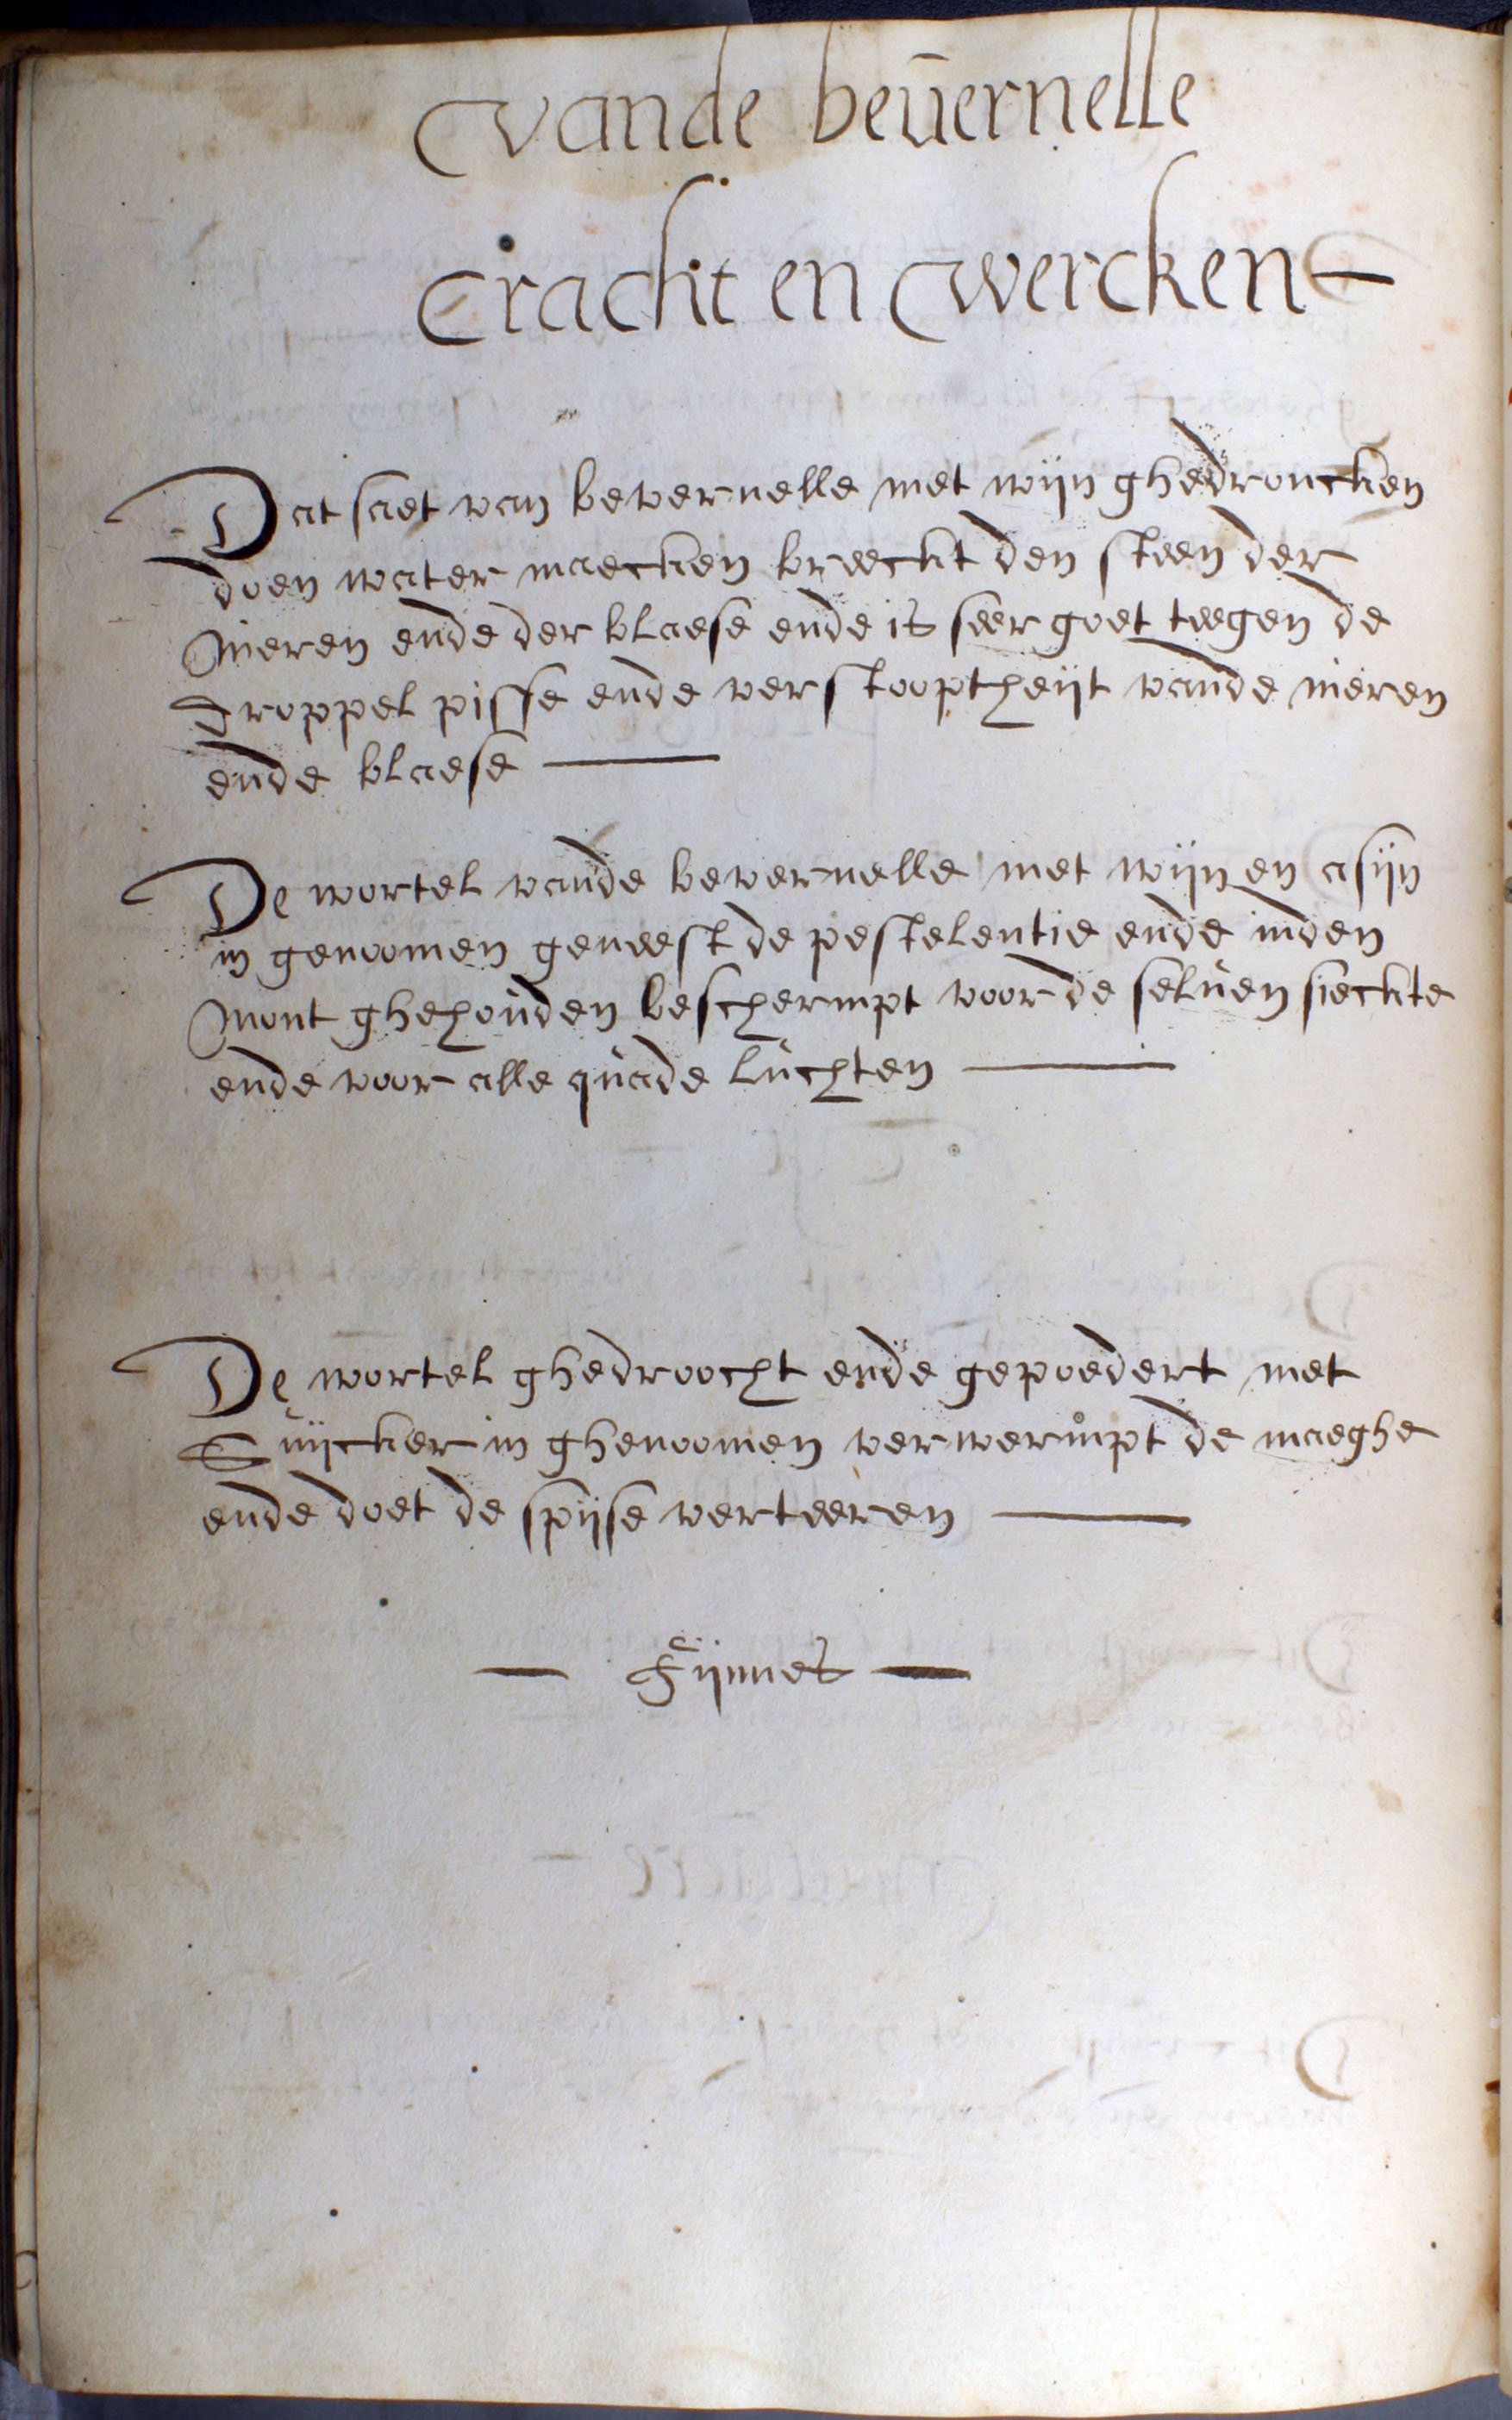 vande beuernelle
cracht en wercken
Dat saet van bevernelle met wijn ghedroncken
doen water maecken breeckt den steen der
Nieren ende der blaese ende is seer goet teegen de
droppel pisse ende verstooptheijt vande nieren
ende blaese
De wortel vande bevernelle met wijn en asijn
in genoomen geneest de pestelentie ende inden
Mont ghehouden beschermpt voor de seluen sieckte
ende voor alle quade luchten
De wortel ghedroocht ende gepoedert met
Suijcker in ghenoomen verwermpt de maeghe
ende doet de spijse verteeren
Fijnnes